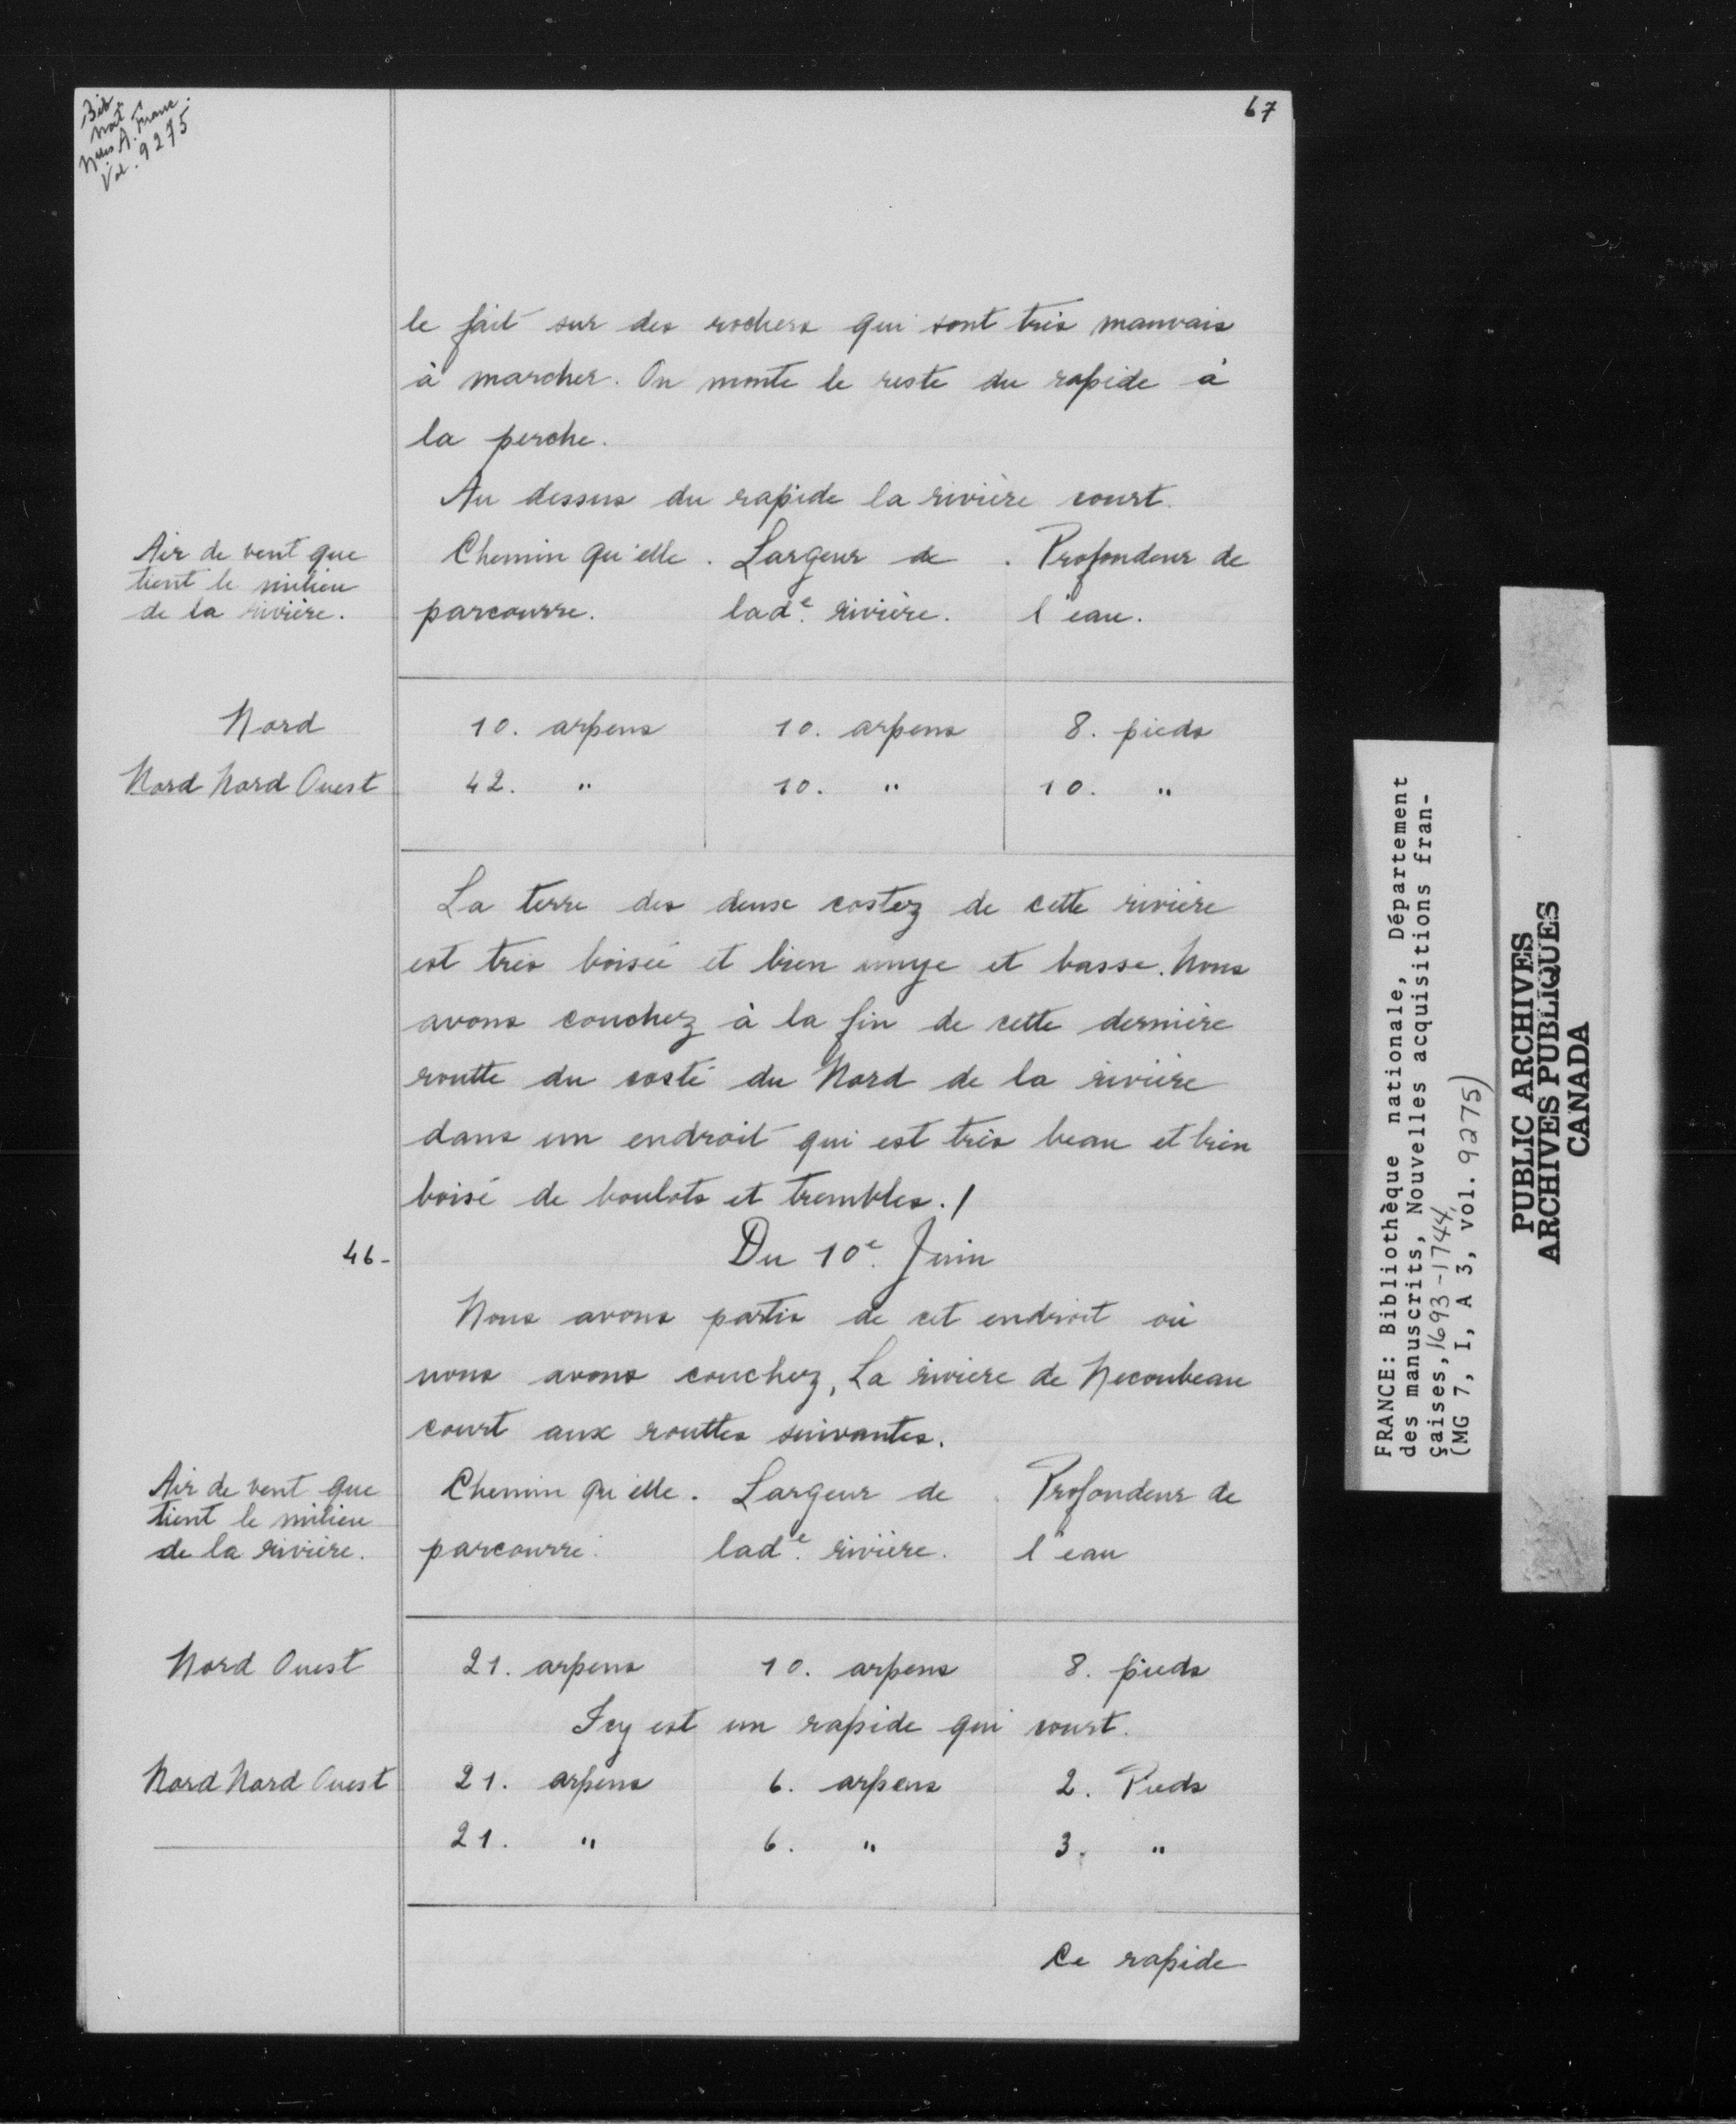 Bib
nat
Nlles A. Franc.
Vol. 9275
67
le fait sur des rochers qui sont très mauvais
à marcher. On monte le reste du rapide à
la perche.
Au dessus du rapide la rivière court.
Air de vent que
tient le milieu
de la rivière.
Chemin qu'elle . Largeur de . Profondeur de
parcourre. lad.e rivière. l'eau.
Nord 10. arpens 10. arpens 8. pieds
Nord Nord Ouest 42. " 10. " 10. "
La terre des deux costez de cette rivière
est très boisée et bien unye et basse. Nous
avons couchez à la fin de cette dernière
routte du costé du Nord de la rivière
dans un endroit qui est très beau et bien
boisé de boulots et trembles./
46- Du 10.e Juin
Nous avons partis de cet endroit où
nous avons couchez, La rivière de Necoubeau
court aux routtes suivantes.
Air de vent que
tient le milieu
de la rivière.
Chemin qu'elle . Largeur de . Profondeur de
parcourre. lad.e rivière. l'eau
Nord Ouest 21. arpens 10. arpens 8. pieds
Icy est un rapide qui court.
Nord Nord Ouest 21. arpens 6. arpens 2. Pieds
21. " 6. " 3. "
Ce rapide
FRANCE: Bibliothèque nationale, Département
des manuscrits, Nouvelles acquisitions fran-
çaises, 1693-1744,
(MG 7, I, A 3, vol. 9275)
PUBLIC ARCHIVES
ARCHIVES PUBLIQUES
CANADA